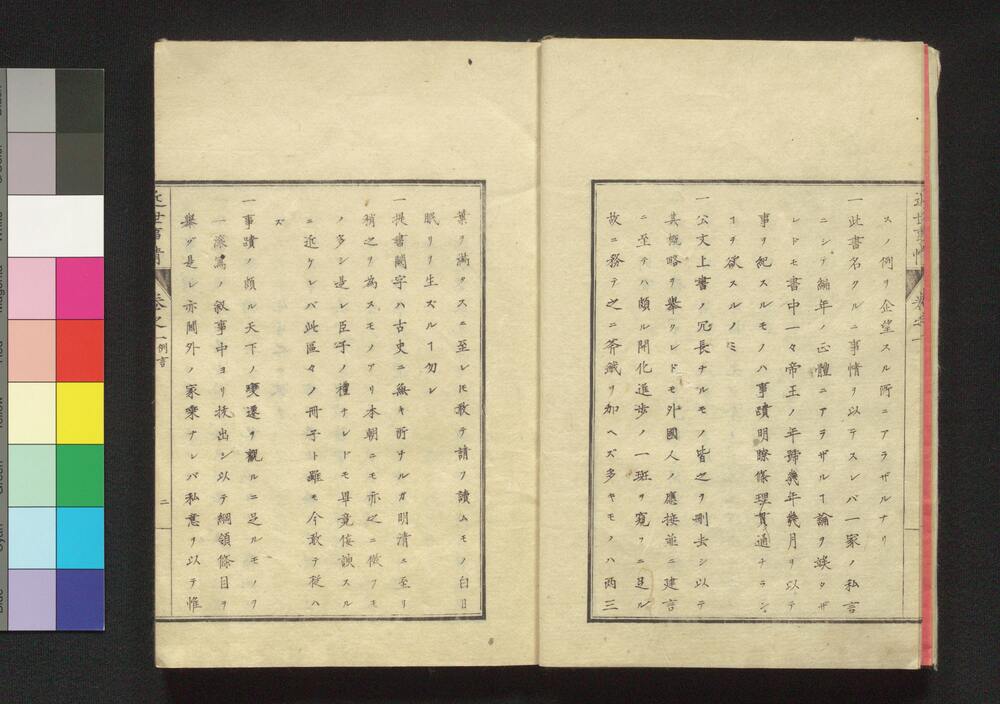 スノ例リ企望スル所ニアラザルナリ
一此書名クルニ事情ヲ以テスレバ一家ノ私言
ニシテ編年ノ正體ニアラザルヿ論ヲ竢タザ
レドモ書中一々帝王ノ年號幾年幾月ヲ以テ
事ヲ紀スルモノハ事蹟明瞭條理貫通ナラン
ヿヲ欲スルノミ
一公文上書ノ冗長ナルモノ皆之ヲ刪去シ以テ
其概略ヲ舉クレドモ外國人ノ應接並ニ建言
ニ至テハ頗ル開化進歩ノ一斑ヲ窺フニ足ル
故ニ務テ之ニ斧鉞ヲ加ヘズ多キモノハ兩三
葉ヲ滿タスニ至レ𪜈敢テ請フ讀ムモノ白日
眠リヲ生ズルヿ勿レ
一提書闕字ハ古史ニ無キ所ナルガ明清ニ至リ
稍之ヲ為スモノアリ本朝ニモ亦之ニ傚フモ
ノ多シ是レ臣子ノ禮ナレドモ畢竟侫諛スル
ニ近ケレバ此區々ノ冊子ト雖モ今敢テ從ハ
ズ
一事蹟ノ頗ル天下ノ變遷ヲ觀ルニ足ルモノヲ
一滾為ノ叙事中ヨリ抜出シ以テ綱領條目ヲ
舉グ是レ亦閫外ノ家乘ナレバ私意ヲ以テ惟
近世事情 卷之一 例言 二